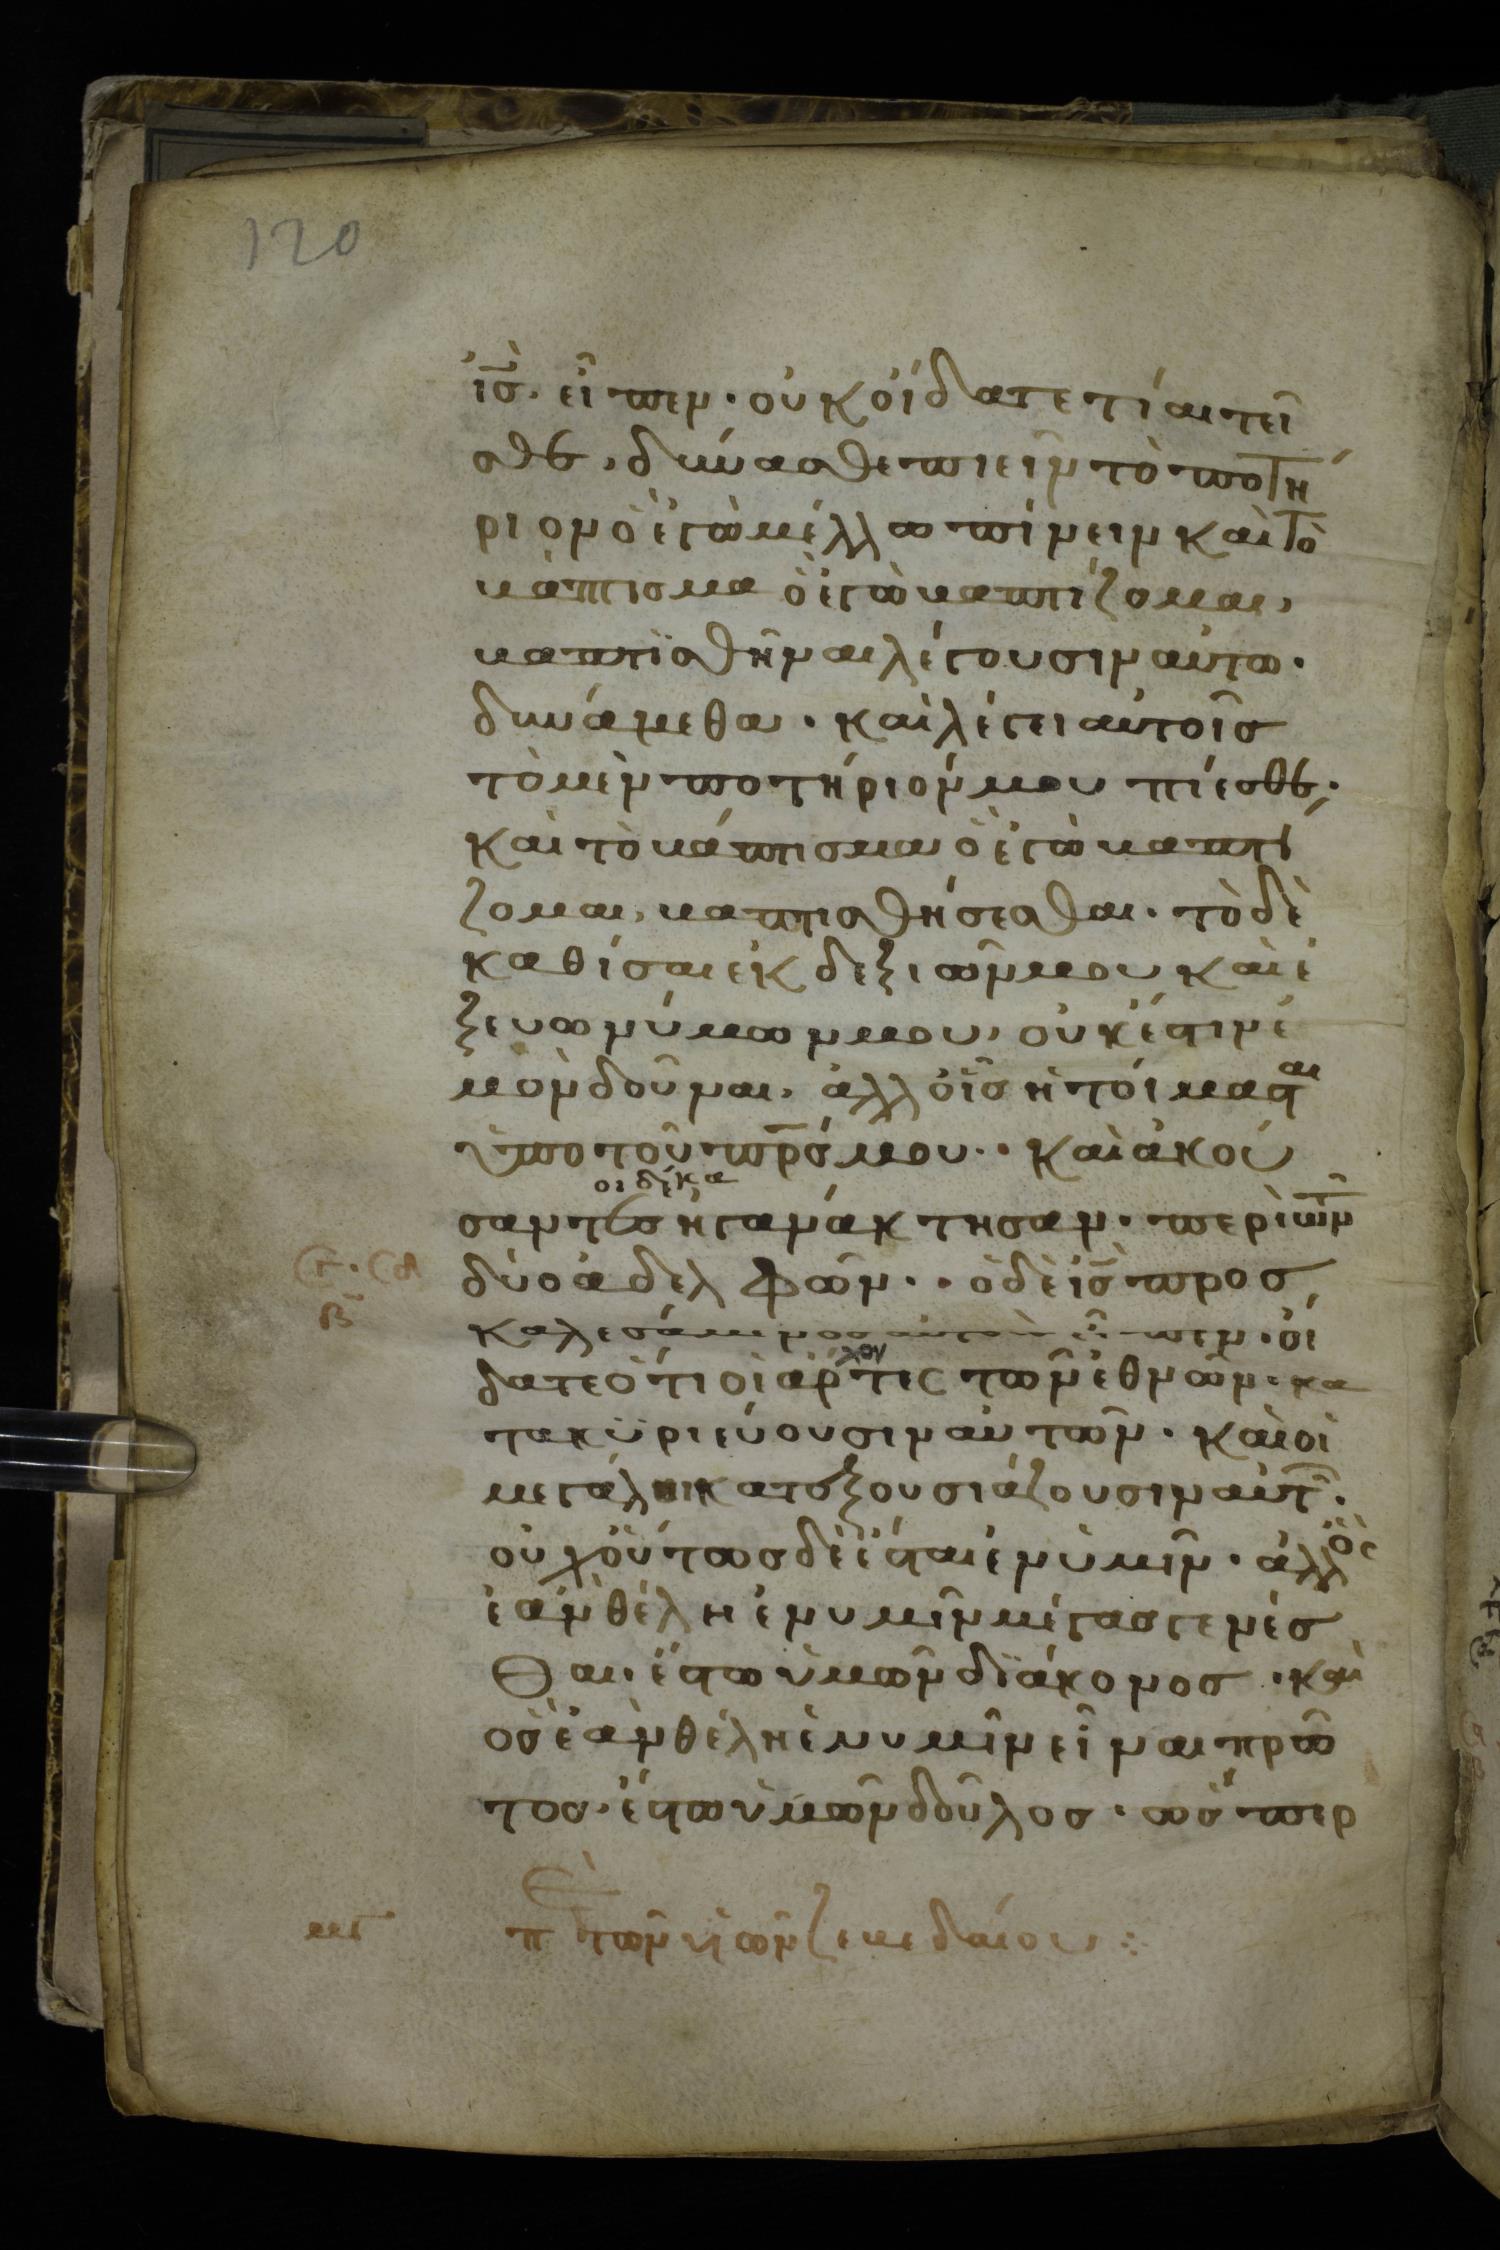 120
ἰς̅ εἶπεν· οὐκ οἴδατε τί αἰτεῖ
σθε, δύνασθε πιεῖν τὸ ποτή
ριον ὃ ἐγὼ μέλλω πίνειν καὶ τὸ
βάπτισμα ὃ ἐγὼ βαπτίζομαι,
βαπτϊσθῆναι λέγουσιν αὐτω·
δυνάμεθα· καὶ λέγει αὐτοῖς
τὸ μὲν ποτήριόν μου πίεσθε,·
καὶ τὸ βάπτισμα ὃ ἐγὼ βαπτί
ζομαι, βαπτισθήσεσθαι· τὸ δὲ
καθίσαι ἐκ δεξιῶν μου καὶ ἐ
ξευωνύμων μου, οὐκ ἔστιν ἐ
μὸν δοῦναι, ἀλλ οἷς ἡτοίμασται
ὑπο τοῦ π̅ρ̅ς μου·· καὶ ἀκού
οι δέκα
σαντες ἠγανάκτησαν· περὶ τῶν
δύο ἀδελφῶν·· ὁ δὲ ἰς̅ προσ
καλεσάμενος αὐτοὺς εἶπεν· οἴ
χον
δατε ὅτι οἱ ἄρτες τῶν ἐθνῶν· κα
τακϋριεύουσιν αὐτῶν· καὶ οἱ
μεγάλοι κατεξουσιάζουσιν αὐτῶν·
οὐχ οὕτως δὲ ἔσται ἐν ὑμῖν· ἀλλ ὃς
ἐὰν θέλη ἐν υμῖν μέγας γενέσ
θαι· ἔστω ὑμῶν δϊάκονος· καὶ
ὃς ἐὰν θέλη ἐν υμῖν εἶναι πρῶ
τος· ἔστω ὑμῶν δοῦλος· ὥσπερ
π τῶν υἱῶν ζεβεδαίου:·